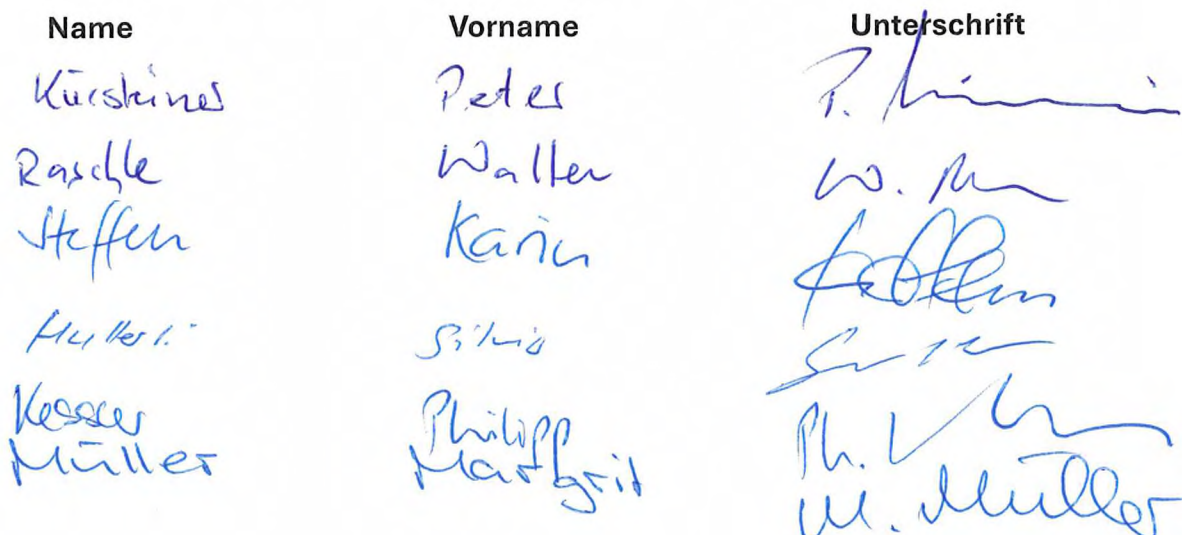 Name Vorname Unterschrift
Kürsteiner Peter P.
Raschle Walter W.
Steffen Karin
Silvio
Kesser Philipp Ph.
Müller Margrit M. Müller